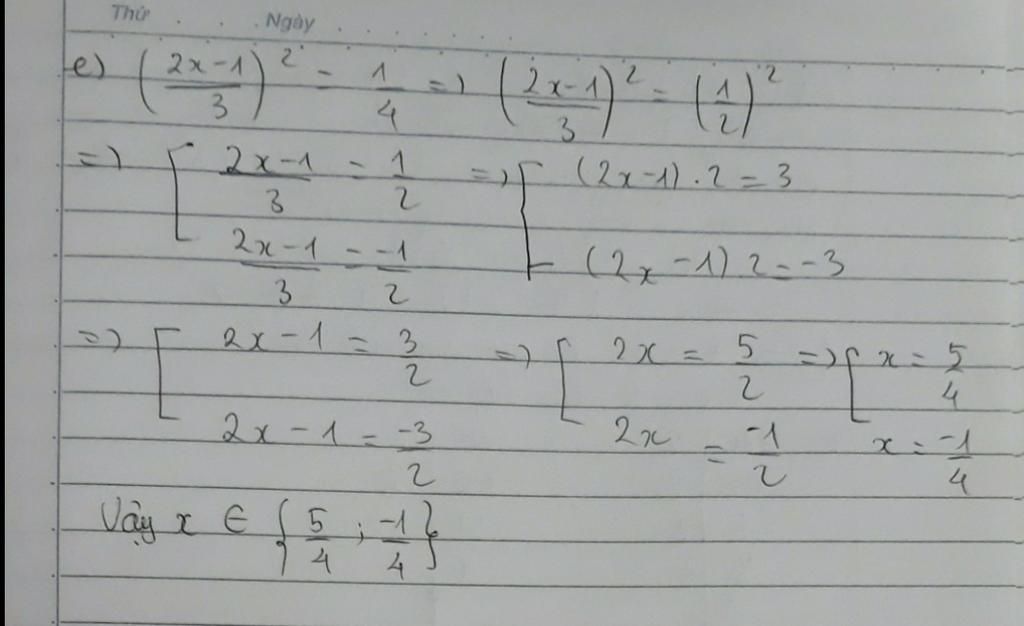 Thứ . . . Ngày . . . . . . .
e) (2x-1/3)² = 1/4 => (2x-1/3)² = (1/2)²
=> [ 2x-1/3 = 1/2 => [ (2x-1).2 = 3
2x-1/3 = -1/2 (2x-1)2 = -3
=> [ 2x-1 = 3/2 => [ 2x = 5/2 => [ x = 5/4
2x-1 = -3/2 2x = -1/2 x = -1/4
Vậy x ∈ {5/4 ; -1/4}